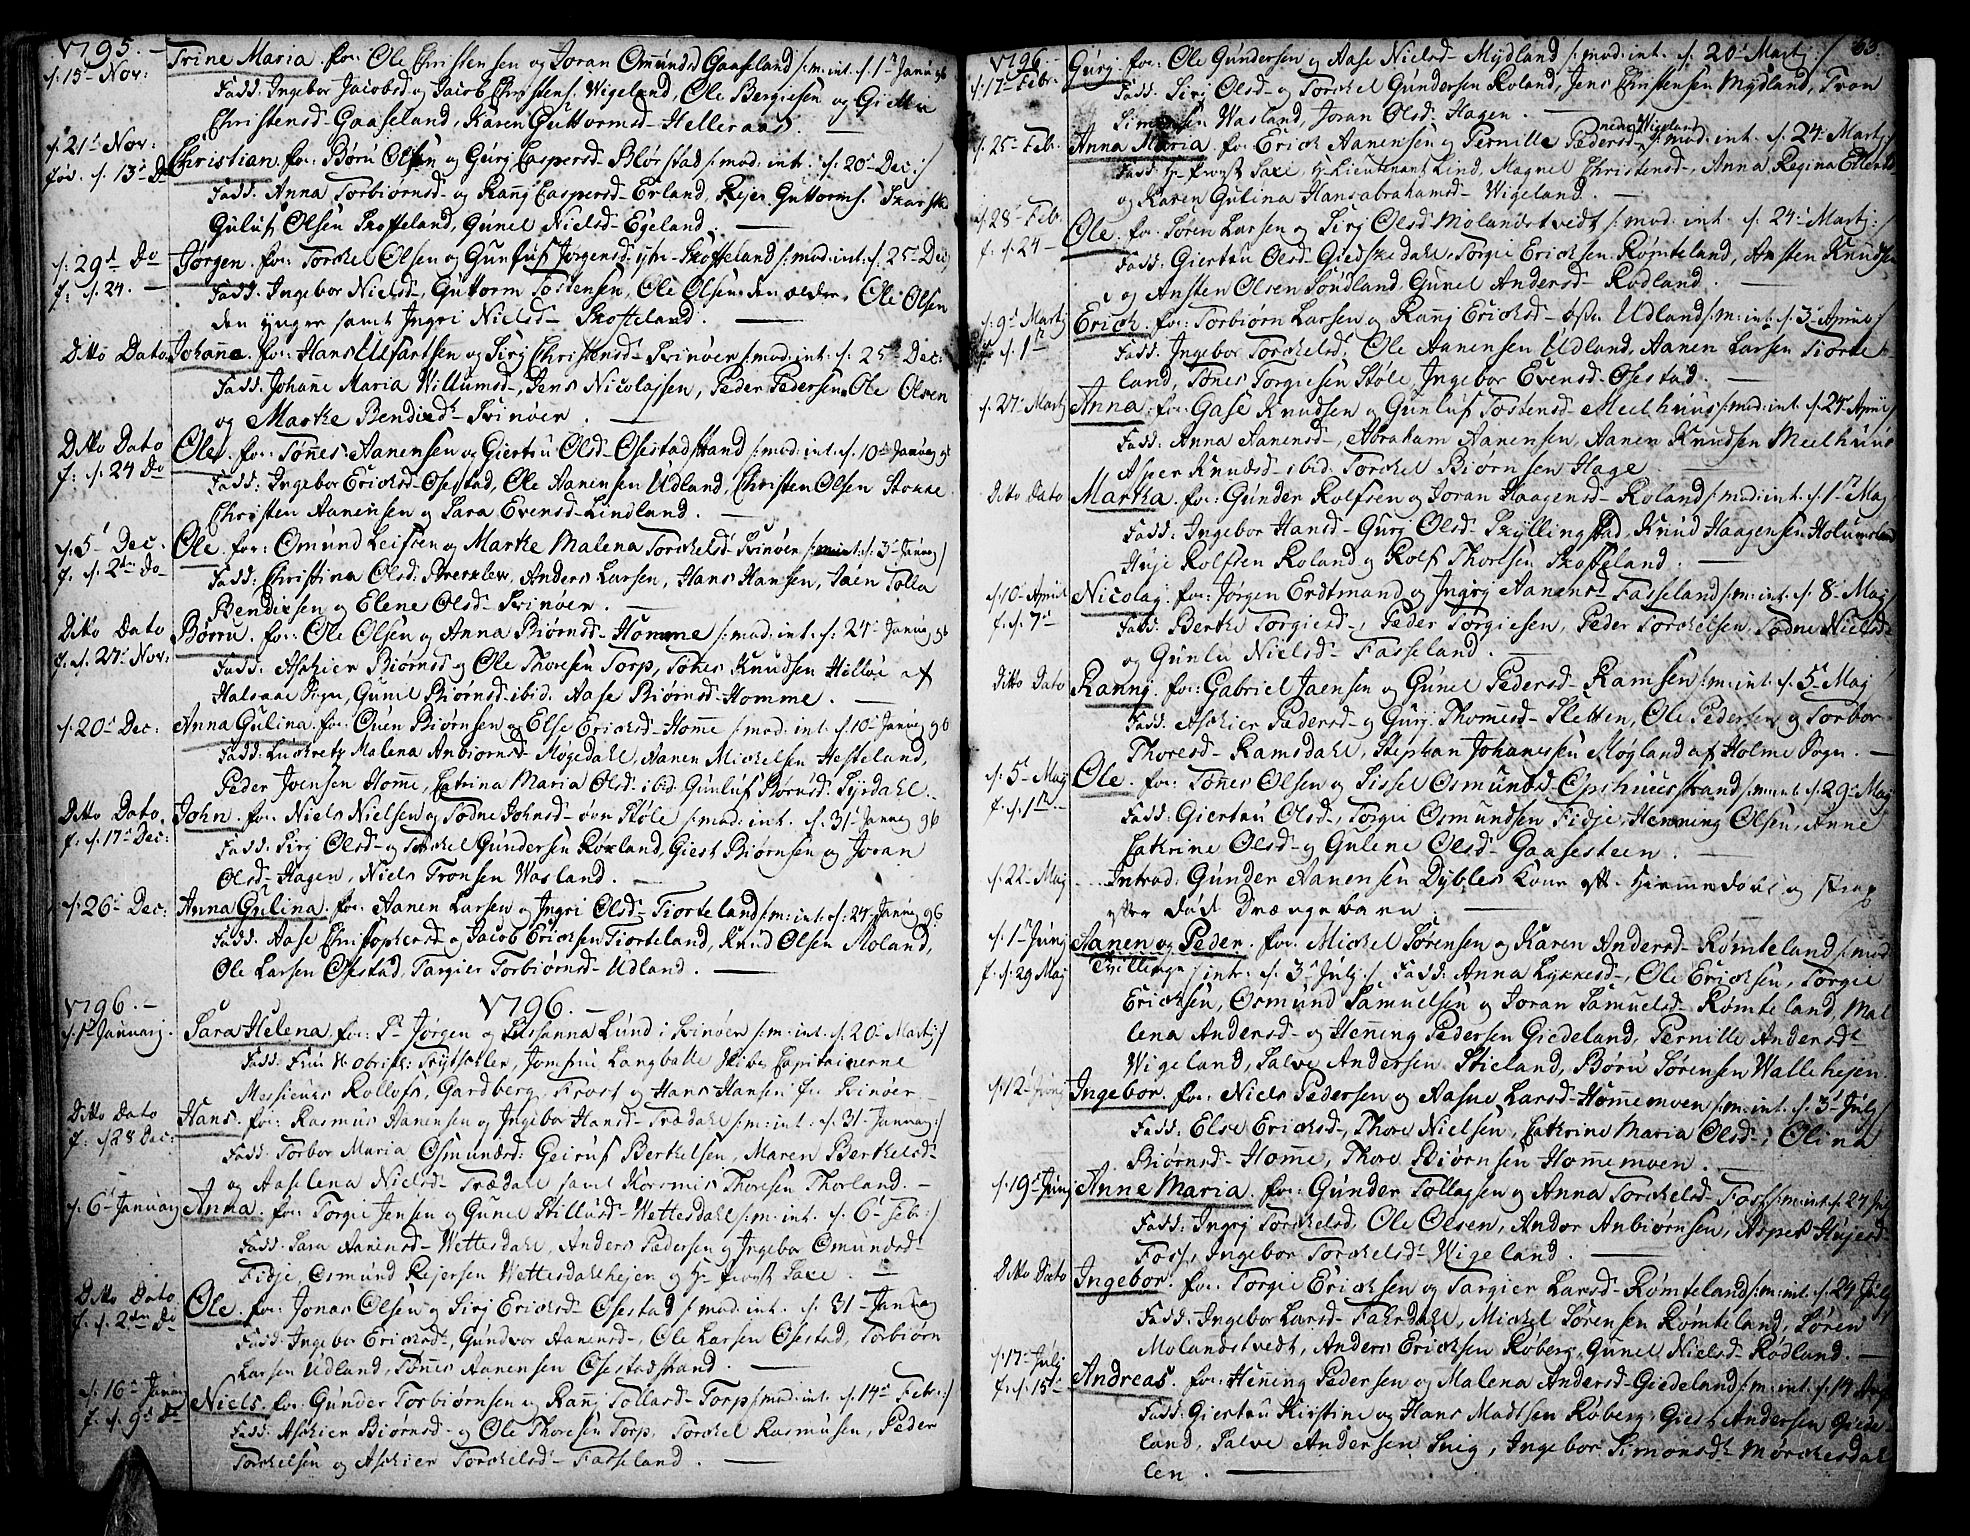 1795.-
d: 15de Nov: Trine Maria. for: Ole Christensen og Joran Omunds Gaaseland /: m: int. d: 1te Januarj 96
Fadd: Ingebor Jacobsd og Jacob Christens. Wigeland, Ole Bergiesen og
Christensd- Gaaseland, Karen Guttormsd- Helleraas.
d: 21de Nov: Christian. for: Børu Olsen og Gurj Caspersd- Blørstad /: mod: int. d: 20de Dec:/
før. d: 13de
Fadd: Anna Torbiørnsd- og Ranj Caspersd- Erland, Rejer Guttorms.
Guluf Olsen Skoffeland, Gunel Nielsd- Egeland.
d: 29de Do Jørgen. for: Torckel Olsen og Gunluf Jørgensd. Skoffeland /: mod: int: d: 25de Dec/
f: d. 24.-
Fadd: Ingebor Nielsd-, Guttorm Tostensen, Ole Olsen den ælder, Ole Olsen
den yngre samt Ingri Nielsd- Skoffeland.
Ditto Dato Johanne. for: Hans Ulfartsen og Sirj Christensd- Svinøer /: mod: int: d: 25 Dec:
Fadd: Johanne Maria Willumsd-, Jens Nicolajsen, Peder Pedersen, Ole Olsen
og Marthe Bendixd- Svinøer.
Ditto Dato Ole. for: Tønnes Aanensen og Giertru Olsd- Osestadstrand /: mod: int. d. 10de Januarj 96
f: d. 24 Do
Fadd: Ingebor Ericksd- Osestad, Ole Aanensen Udland, Christen Olsen Stokke
Christen Aanensen og Sara Evensd- Lindland.
d: 5te Dec. Ole. for: Omund Leifsen og Marthe Malena Torckelsd- Svinøer /: m: int. d. 3de Januarj/
f. d. 2den do
Fadd: Christina Olsd. , Anders Larsen, Hans Hansen, Jaen Tolla
Bendixsen og Elene Olsd- Svinøer.
Ditto Dato Børru. for: Ole Olsen og Anna Biørnsd- Homme /: mod: int: d: 24de Januarj 96
f. d. 27de Nov:
Fadd: Aschier Biørnsd- og Ole Thoresen Torp, Tønes Knudsen Hilløe af
Halsaae Sogn, Gunil Biørnsd- ibid. Aase Biørnsd- Homme.
d: 20de Dec: Anna Gulina. for: Ouen Biørnsen og Else Ericksd- Homme /: mod: int. d. 10de Januarj 96
Fadd: Malena Anbiørnsd- Møgedahl, Aanen Mickelsen Hesteland,
Peder Joensen Homme, Catrina Maria Olsd- ibid. Gunluf Biørnsd. Syrdahl.
Ditto Dato. John. for: Niels Nielsen og Todne Johnsd- øvr Støle /: mod: int. d. 31de Januarj 96
f: d: 17de Dec:
Fadd: Sirj Olsd- og Torckel Gundersen Roland, Giest Biørnsen og Joran
Olsd- Hagen, Niels Tronsen Wasland.
d: 26de Dec: Anna Gulina. for: Aanen Larsen og Ingri Olsd- Tiorteland /: m: int: d. 24de Januarj 96
Fadd: Aase Christophersd- og Jacob Ericksen Tiorteland, Knud Olsen Moland,
Ole Larsen Osestad, Targier Torbiørnsd- Udland.
1796.- 1796.-
d: 1te Januarj. Sara Helena. for: Sr Jørgen og Susanna Lund i Svinøer /: m: int. d: 20de Martj:/
Fadd: Fru Obristl: , Jomfru Langballe Skibs Capitainerne
Messieurs Rollofs, Gardberg, Frost og Hans Hansen Jr. Svinøer-
Ditto Dato Hans. for: Rasmus Aanensen og Ingebor Hansd- Trædahl /: m: int: d. 31de Januarj:/
f: d 28 Dec:
Fadd: Torbor Maria Osmundsd: Geiruf Berthelsen, Maren Berthelsd-
og Aaselena Nielsd- Trædahl samt Kormis Thoresen Thorland.-
d. 6te Januarj Anna. for: Torgie Jensen og Gunel Stillufsd- Wettesdahl /: m: int. d. 6te Febr:/
Fadd: Sara Aanensd- Wettesdahl, Anders Pedersen og Ingebor Osmundsd-
Fidje, Osmund Rejersen Wettesdahlhejen og Hr Provst Saxe.-
Ditto Dato Ole. for: Jonas Olsen og Sirj Ericksd- Osestad /: mod: int. d: 31de Januarj
f. d. 2den Do
Fadd: Ingebor Ericksd-, Gundvor Aanensd-, Ole Larsen Osestad, Torbiørn
Larsen Udland, Tønnes Aanensen Osestadstrand.
d: 16de Januarj Niels. for: Gunder Torbiørnsen og Ranj Tollasd- Torp /: mod: int: d. 14de Febr:/
f. d. 9de Do
Fadd: Aschier Biørnsd- og Ole Thoresen Torp, Torckel Rasmusen, Peder
Torckelsen og Aschier Torckelsd- Fasseland.
63.
1796.-
d: 17de Febr. Gurj. for: Ole Gundersen og Aase Nielsd- Mydland /: mod: int. d: 20de Martj:/
Fadd: Sirj Olsd- og Torckel Gundersen Roland, Jens Christensen Mydland, Tron
Simonsen Wasland, Joran Olsd- Hagen.
d: 25de Feb. Anna Maria. for: Erick Aanensen og Pernille Pedersd- nedre Wigeland /: mod: int: d. 24de Martj/
Fadd Hr Provst Saxe, Hr Lieutenant Lind, Magnel Christensd-, Anna Regina
og Karen Gulina Hansabrahamsd- Wigeland.
d: 28de Feb. Ole. for: Søren Larsen og Sirj Olsd Molandstvedt /: mod: int. d: 24de Martj:/
f. d. 24-
Fadd: Giertru Olsd- Giedskedahl, Torgie Ericksen Rømteland, Ansten Knudsen
og Ansten Olsen Sundland, Gunel Andersd- Rødland.
d: 9de Martj Erick. for: Torbiørn Larsen og Ranj Ericksd- østr. Udland /: m: int: d. 3de April/
d. 1te
Fadd: Ingebor Torckelsd, Ole Aanensen Udland, Aanen Larsen Tiorte
land, Tønes Torgiesen Støle, Ingebor Evensd- Osestad.
d: 27de Martj Anna. for: Gase Knudsen og Gunluf Tostensd- Meelhuus /: mod: int. d. 24de April/
Fadd: Anna Aanensd-, Abraham Aanensen, Aanen Knudsen Meelhuus
Asper Knudsd- ibid. Torckel Biørnsen Hage
Ditto Dato Martha. for: Gunder Rolfsen og Joran Haagensd- Roland /: mod: int. d. 1te Maj
Fadd: Ingebor Hansd- Gurj Olsd- Skyllingstad, Knud Haagensen Holumsland
Huje Rolfsen Roland og Rolf Thoresen Skoffeland.
d. 10de April Nicolaj. for: Jørgen Erdtmand og Ingrj Aanensd- Fasseland /: m: int. d. 8de Maj
f. d. 7de
Fadd: Berthe Torgiesd-, Peder Torgiesen, Peder Torckelsen, Todne Nielsd-
og Gunlu Nielsd- Fasseland.
Ditto Dato Ranni. for: Gabriel Jaensen og Gunel Pedersd- Ramsen /: m: int. d. 5te Maj
Fadd: Aschier Pedersd- og Gurj Thomesd- Sletten, Ole Pedersen og Torbor
Thoresd- Ramsdahl, Stephan Johannessen Møgland af Holme Sogn.-
d. 5te Maj Ole. for: Tønnes Olsen og Sissel Osmundsd Opshuusstrand /: m: int d. 29de Maj
f. d. 1te
Fadd: Giertru Olsd-, Torgie Osmundsen Fidje, Henning Olsen, Anne
Cathrine Olsd- og Gulene Olsd- Gaasesteen.
d: 22de Maj Introd: Gunder Aanensen Dybles kone eft. Hiemmedøbt og strax
efter død Drængebarn
d. 1te Junj Aanen og Peder. for: Mickel Sørensen og Karen Andersd- Rømteland /: mod:
f. d. 29 Maj Tvillinge / intr: d. 3de Julj:/ Fadd: Anna Lykkesd-, Ole Ericksen, Torgie
Ericksen, Osmund Samuelsen og Joran Samuelsd- Rømteland, Mal
lena Andersd- og Henning Pedersen Giedeland, Pernille Andersd-
Wigeland, Salve Andersen Stieland, Børu Sørensen Wallehejen.
d: 12de Junj Ingebor. for: Niels Pedersen og Aasne Larsd- Hommemoen /: m: int. d. 3de Julj/
Fadd: Else Ericksd-, Thore Nielsen, Cathrine Maria Olsd-, Olina
Biørnsd- Homme, Thore Biørnsen Hommemoen.
d. 19de Junj Anne Maria. for: Gunder Tollagsen og Anna Torckelsd- Foss /: m: int. d. 24 Julj
Fadd: Ingrj Torckelsd, Ole Olsen, Andor Anbiørnsen, Asper Hujesd-
Foss, Ingebor Torckelsd- Wigeland.
Ditto Dato Ingebor. for: Torgie Ericksen og Targier Larsd- Rømteland /: m: int. d. 24 Julj
Fadd: Ingebor Larsd- Fahrdahl, Mickel Sørensen Rømteland, Søren
Molandstvedt, Anders Ericksen Røberg, Gunel Nielsd- Rødland.-
d: 17de Julj Andreas. for: Henning Pedersen og Malena Andersd- Giedeland /: m: int. d. 14
f. d. 15de
Fadd: Giertru Kirstine og Hans Madtsen Røberg, Giest Andersen Giede-
land, Salve Andersen Snig, Ingebor Simonsd- Mørckesdah
len.